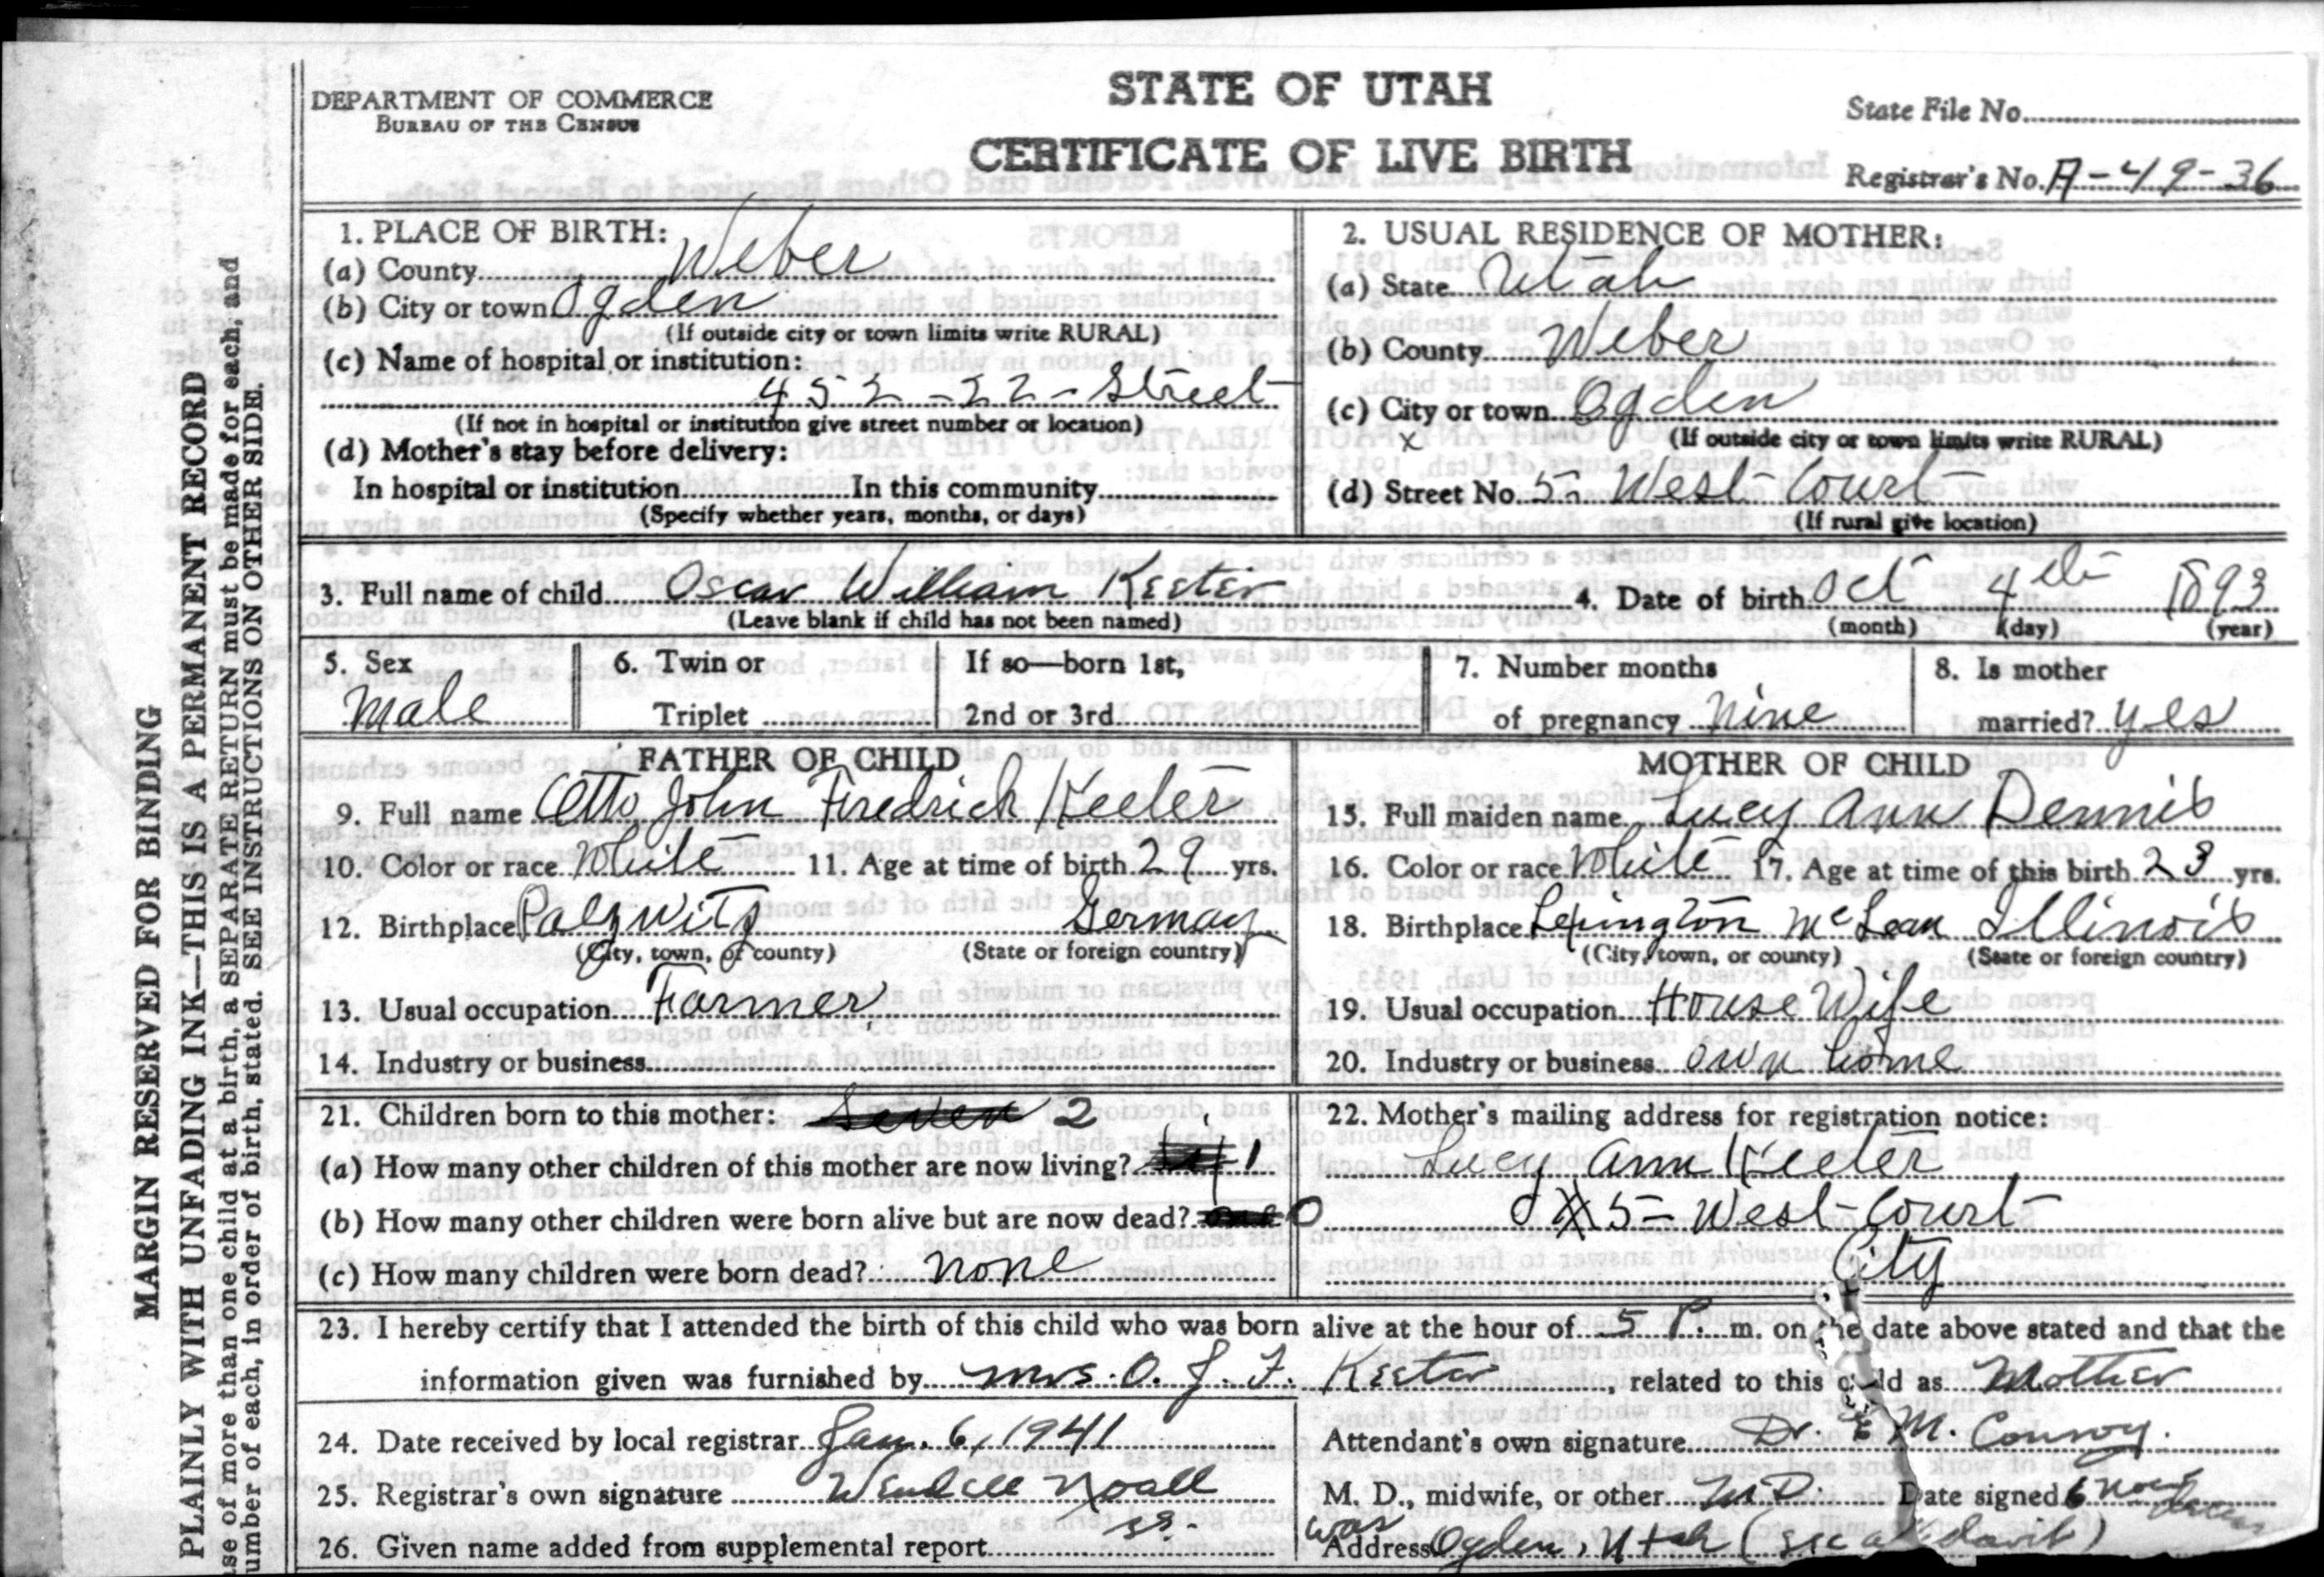 STATE OF UTAH
CERTIFICATE OF LIVE BIRTH
DEPARTMENT OF COMMERCE
BUREAU OF THE CENSUS
State File No.
Registrar's No. A-49-36
MARGIN RESERVED FOR BINDING
PLAINLY WITH UNFADING INK—THIS IS A PERMANENT RECORD
se of more than one child at a birth, a SEPARATE RETURN must be made for each, and
umber of each, in order of birth, stated. SEE INSTRUCTIONS ON OTHER SIDE.
1. PLACE OF BIRTH:
(a) County Weber
(b) City or town Ogden
(If outside city or town limits write RURAL)
(c) Name of hospital or institution:
452-22-Street
(If not in hospital or institution give street number or location)
(d) Mother's stay before delivery:
In hospital or institution In this community
(Specify whether years, months, or days)
2. USUAL RESIDENCE OF MOTHER:
(a) State Utah
(b) County Weber
(c) City or town Ogden
x (If outside city or town limits write RURAL)
(d) Street No. 5- West-Court
(If rural give location)
3. Full name of child Oscar William Keeter 4. Date of birth Oct 4th 1893
(Leave blank if child has not been named) (month) (day) (year)
5. Sex Male
6. Twin or
Triplet
If so—born 1st,
2nd or 3rd
7. Number months
of pregnancy Nine
8. Is mother
married? yes
FATHER OF CHILD
9. Full name Otto John Fredrich Keeter
10. Color or race White 11. Age at time of birth 29 yrs.
12. Birthplace Palzwitz Germany
(City, town, or county) (State or foreign country)
13. Usual occupation Farmer
14. Industry or business
MOTHER OF CHILD
15. Full maiden name Lucy Ann Dennis
16. Color or race White 17. Age at time of this birth 23 yrs.
18. Birthplace Lexington McLean Illinois
(City, town, or county) (State or foreign country)
19. Usual occupation House Wife
20. Industry or business own home
21. Children born to this mother: Seven 2
(a) How many other children of this mother are now living? 1
(b) How many other children were born alive but are now dead? one 0
(c) How many children were born dead? none
22. Mother's mailing address for registration notice:
Lucy Ann Keeter
# 5- West-Court
City
23. I hereby certify that I attended the birth of this child who was born alive at the hour of 5 P. m. on the date above stated and that the
information given was furnished by Mrs. O. J. F. Keeter, related to this child as Mother
24. Date received by local registrar Jan. 6, 1941
25. Registrar's own signature Wendell Noall
26. Given name added from supplemental report
Attendant's own signature Dr. E M. Conroy.
M. D., midwife, or other M.D. Date signed 6
was
Address Ogden, Utah (see affidavit)